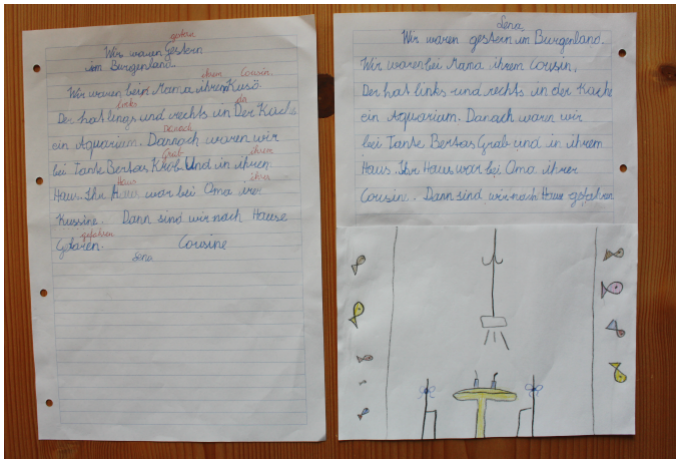 gestern
Wir waren Gestern
im Burgenland
ihrem Cousin
Wir waren bein Mama ihrem Kusö.
links der
Der hat lings und rechts in Der Kache
Danach
ein Aquarium. Darnach waren wir
Grab ihrem
bei Tante Bertas Krob Und in ihren
Haus ihrer
Haus. Ihr Haus war bei Oma irer
Kussine. Dann sind wir nach Hause
gefahren
Gefaren. Cousine
Lena
Lena
Wir waren gestern im Burgenland.
Wir waren bei Mama ihrem Cousin.
Der hat links und rechts in der Kache
ein Aquarium. Danach waren wir
bei Tante Bertas Grab und in ihrem
Haus. Ihr Haus war bei Oma ihrer
Cousine. Dann sind wir nach Hause gefahren